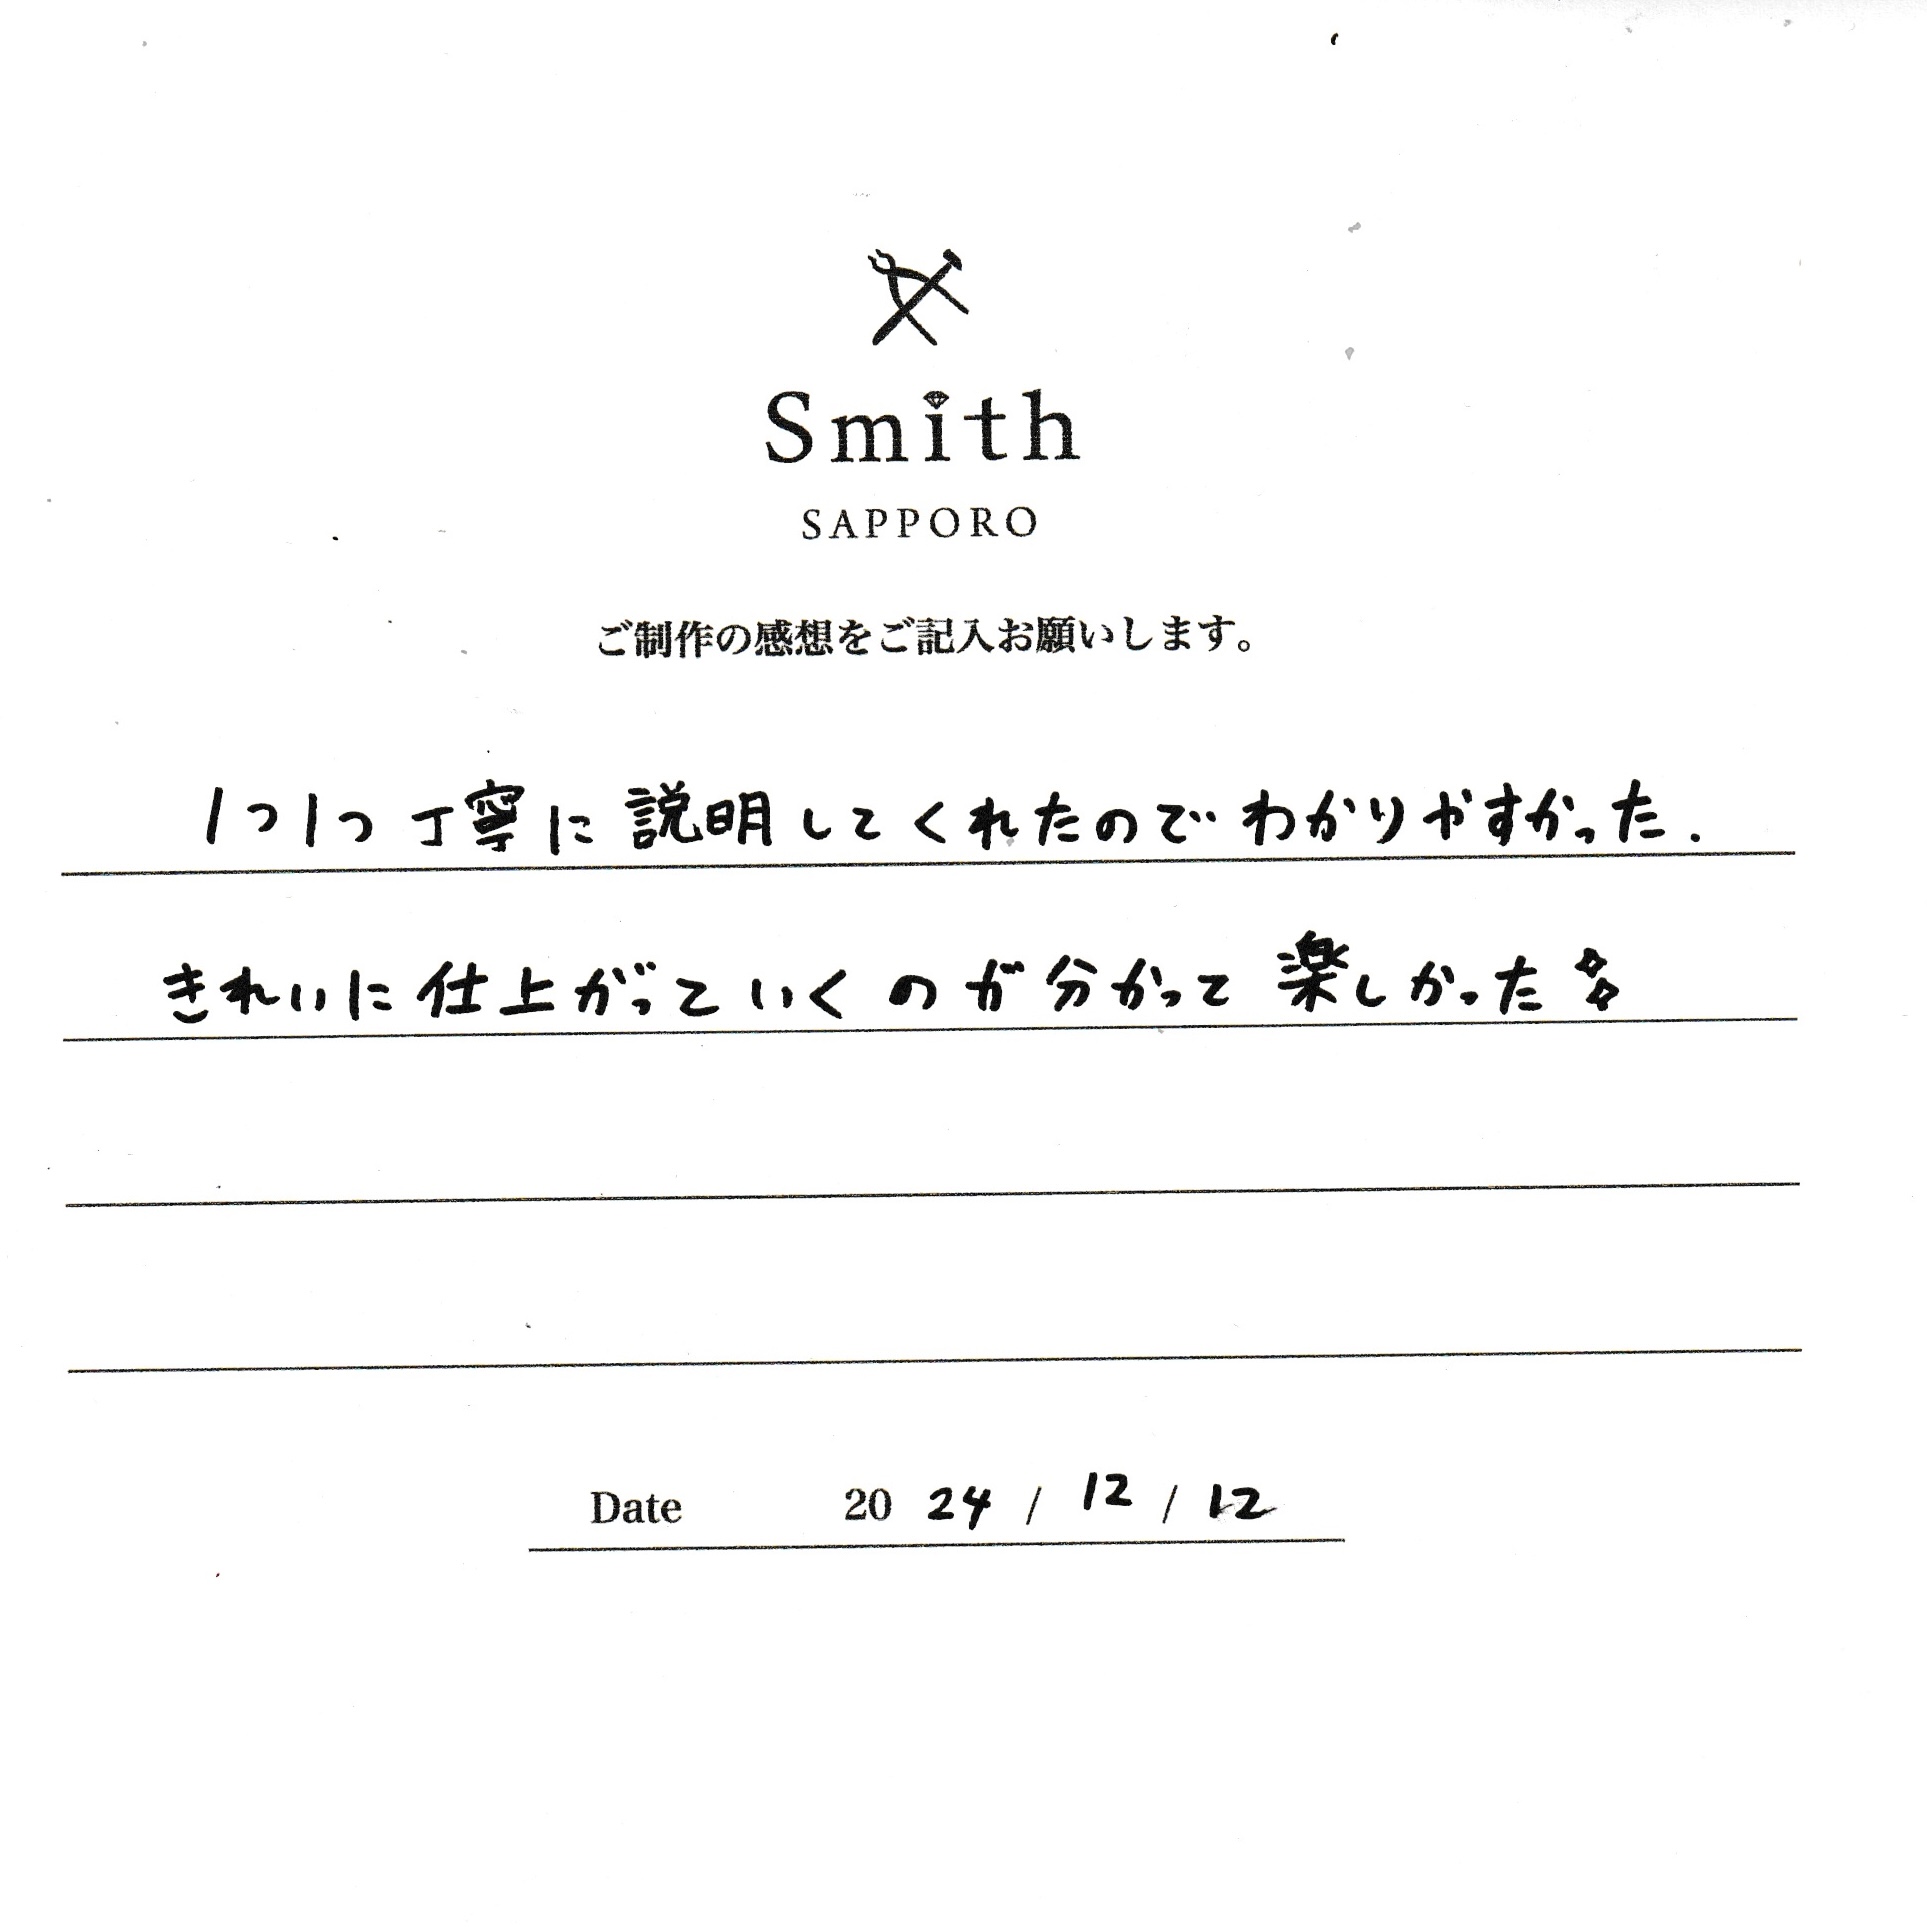 Smith
SAPPORO
ご制作の感想をご記入お願いします。
1つ1つ丁寧に説明してくれたのでわかりやすかった.
きれいに仕上がっていくのが分かって楽しかった
Date 2024 / 12 / 12